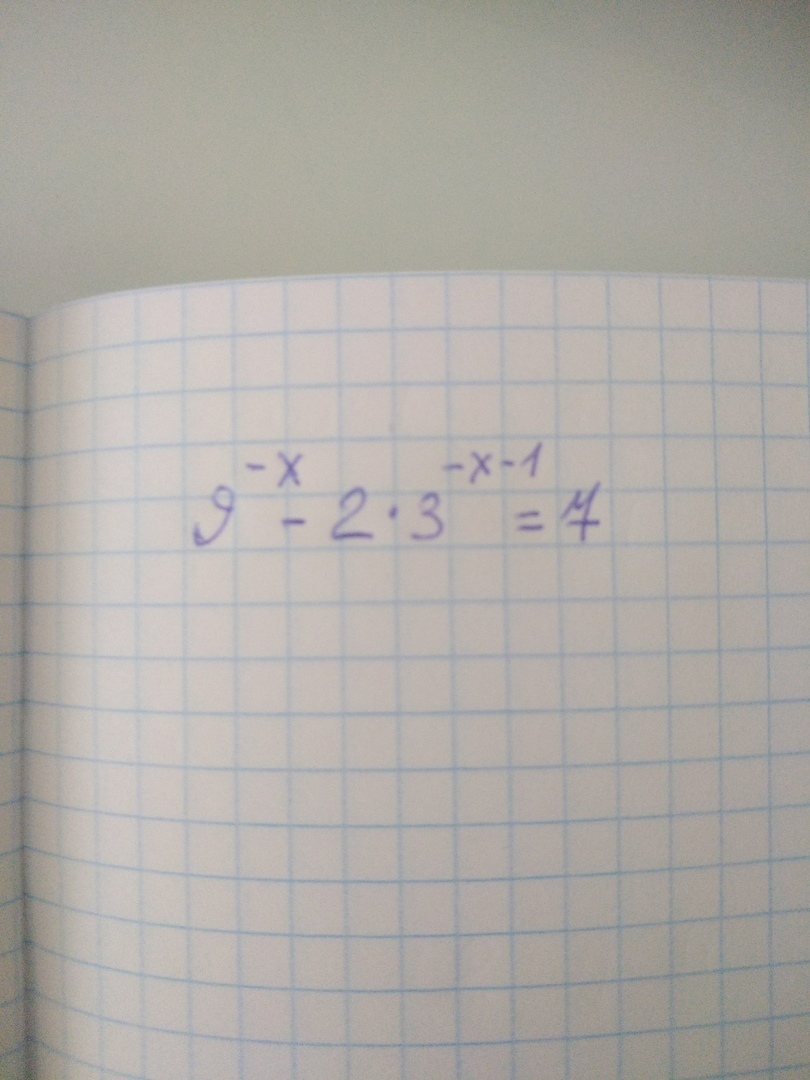 9^{-x} - 2 · 3^{-x-1} = 7